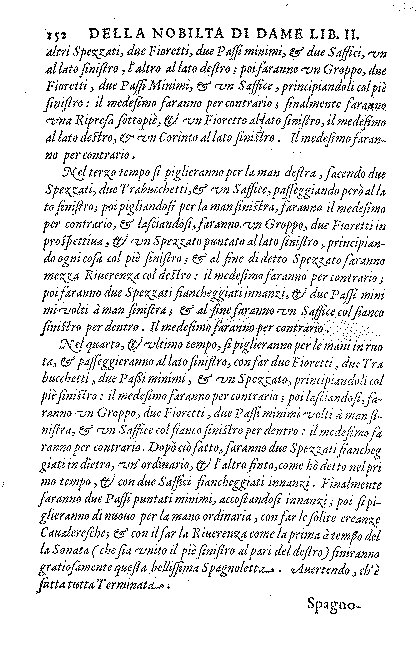 152 DELLA NOBILTA DI DAME LIB. II.
altri Spezzati, due Fioretti, due Paſſi minimi, & due Saffici, vn
al lato ſiniſtro, l'altro al lato deſtro; poi faranno vn Groppo, due
Fioretti, due Paſſi Minimi, & vn Saffice, principiandoli col piè
ſiniſtro: il medeſimo faranno per contrario; finalmente faranno
vna Ripreſa ſottopiè, & vn Fioretto al lato ſiniſtro, il medeſimo
al lato deſtro, & vn Corinto al lato ſiniſtro. Il medeſimo faran-
no per contrario.
Nel terzo tempo ſi piglieranno per la man deſtra, facendo due
Spezzati, due Trabucchetti, & vn Saffice, paſſeggiando però al la
to ſiniſtro; poi pigliandoſi per la man ſiniſtra, faranno il medeſimo
per contrario, & laſciandoſi, faranno vn Groppo, due Fioretti in
proſpettiua, & vn Spezzato puntato al lato ſiniſtro, principian-
do ogni coſa col piè ſiniſtro; & al fine di detto Spezzato faranno
mezza Riuerenza col deſtro: il medeſimo faranno per contrario;
poi faranno due Spezzati fiancheggiati innanzi, & due Paſſi mini
mi volti à man ſiniſtra; & al fine faranno vn Saffice col fianco
ſiniſtro per dentro. Il medeſimo faranno per contrario.
Nel quarto, & vltimo tempo, ſi piglieranno per le mani in ruo
ta, & paſſeggieranno al lato ſiniſtro, con far due Fioretti, due Tra
bucchetti, due Paſſi minimi, & vn Spezzato, principiandoli col
piè ſiniſtro: il medeſimo faranno per contrario; poi laſciandoſi, fa-
ranno vn Groppo, due Fioretti, due Paſſi minimi volti à man ſi-
niſtra, & vn Saffice col fianco ſiniſtro per dentro: il medeſimo fa
ranno per contrario. Dopò ciò fatto, faranno due Spezzati fiancheg
giati in dietro, vn' ordinario, & l'altro finto, come hò detto nel pri
mo tempo, & con due Saffici fiancheggiati innanzi. Finalmente
faranno due Paſſi puntati minimi, accoſtandoſi innanzi; poi ſi pi-
glieranno di nuouo per la mano ordinaria, con far le ſolite creanze
Caualereſche; & con il far la Riuerenza come la prima à tempo del
la Sonata (che ſia vnito il piè ſiniſtro al pari del deſtro) finiranno
gratioſamente queſta belliſſima Spagnoletta. Auertendo, ch'è
fatta tutta Terminata.
Spagno-